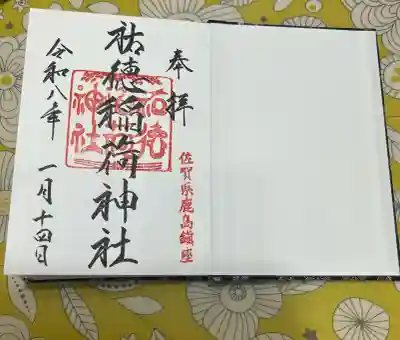 奉拝
佐賀県鹿島鎮座
祐徳稲荷神社
令和八年 一月十四日